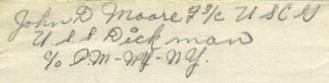 John D Moore F 3/c U S C G
U.S.S Dickman
c/o P.M - NY - NY.